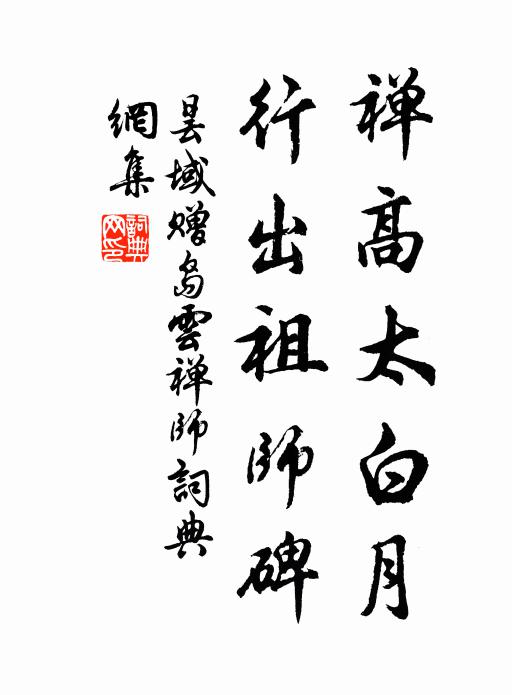 禅高太白月
行出祖师碑
昙域赠岛雲禅师詞典
網集
詞典
网印